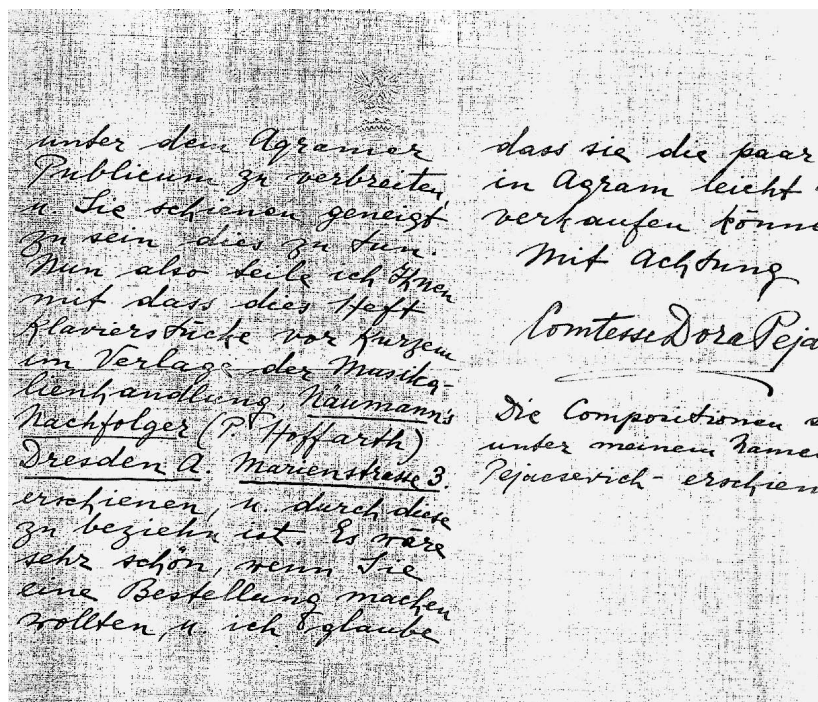 unter dem Agramer
Publicum zu verbreiten,
u. Sie schienen geneigt
zu sein dies zu tun.
Nun also teile ich Ihnen
mit dass dies Heft
Klavierstücke vor Kurzem
im Verlage der Musika-
lienhandlung, Näumann's
Nachfolger (P. Hoffarth)
Dresden A. Marienstrasse 3.
erschienen, u. durch diese
zu beziehn ist. Es wäre
sehr schön, wenn Sie
eine Bestellung machen
wollten, u. ich glaube
dass sie die paar
in Agram leicht
verkaufen könne
Mit Achtung
Comtesse Dora Peja
Die Compositionen s
unter meinem Name
Pejacsevich - erschien